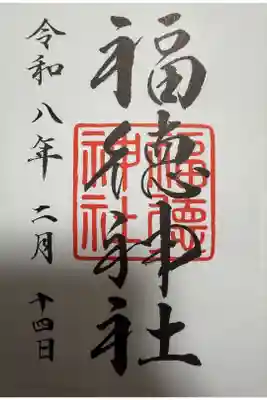 福徳神社
福徳神社
令和八年 二月 十四日